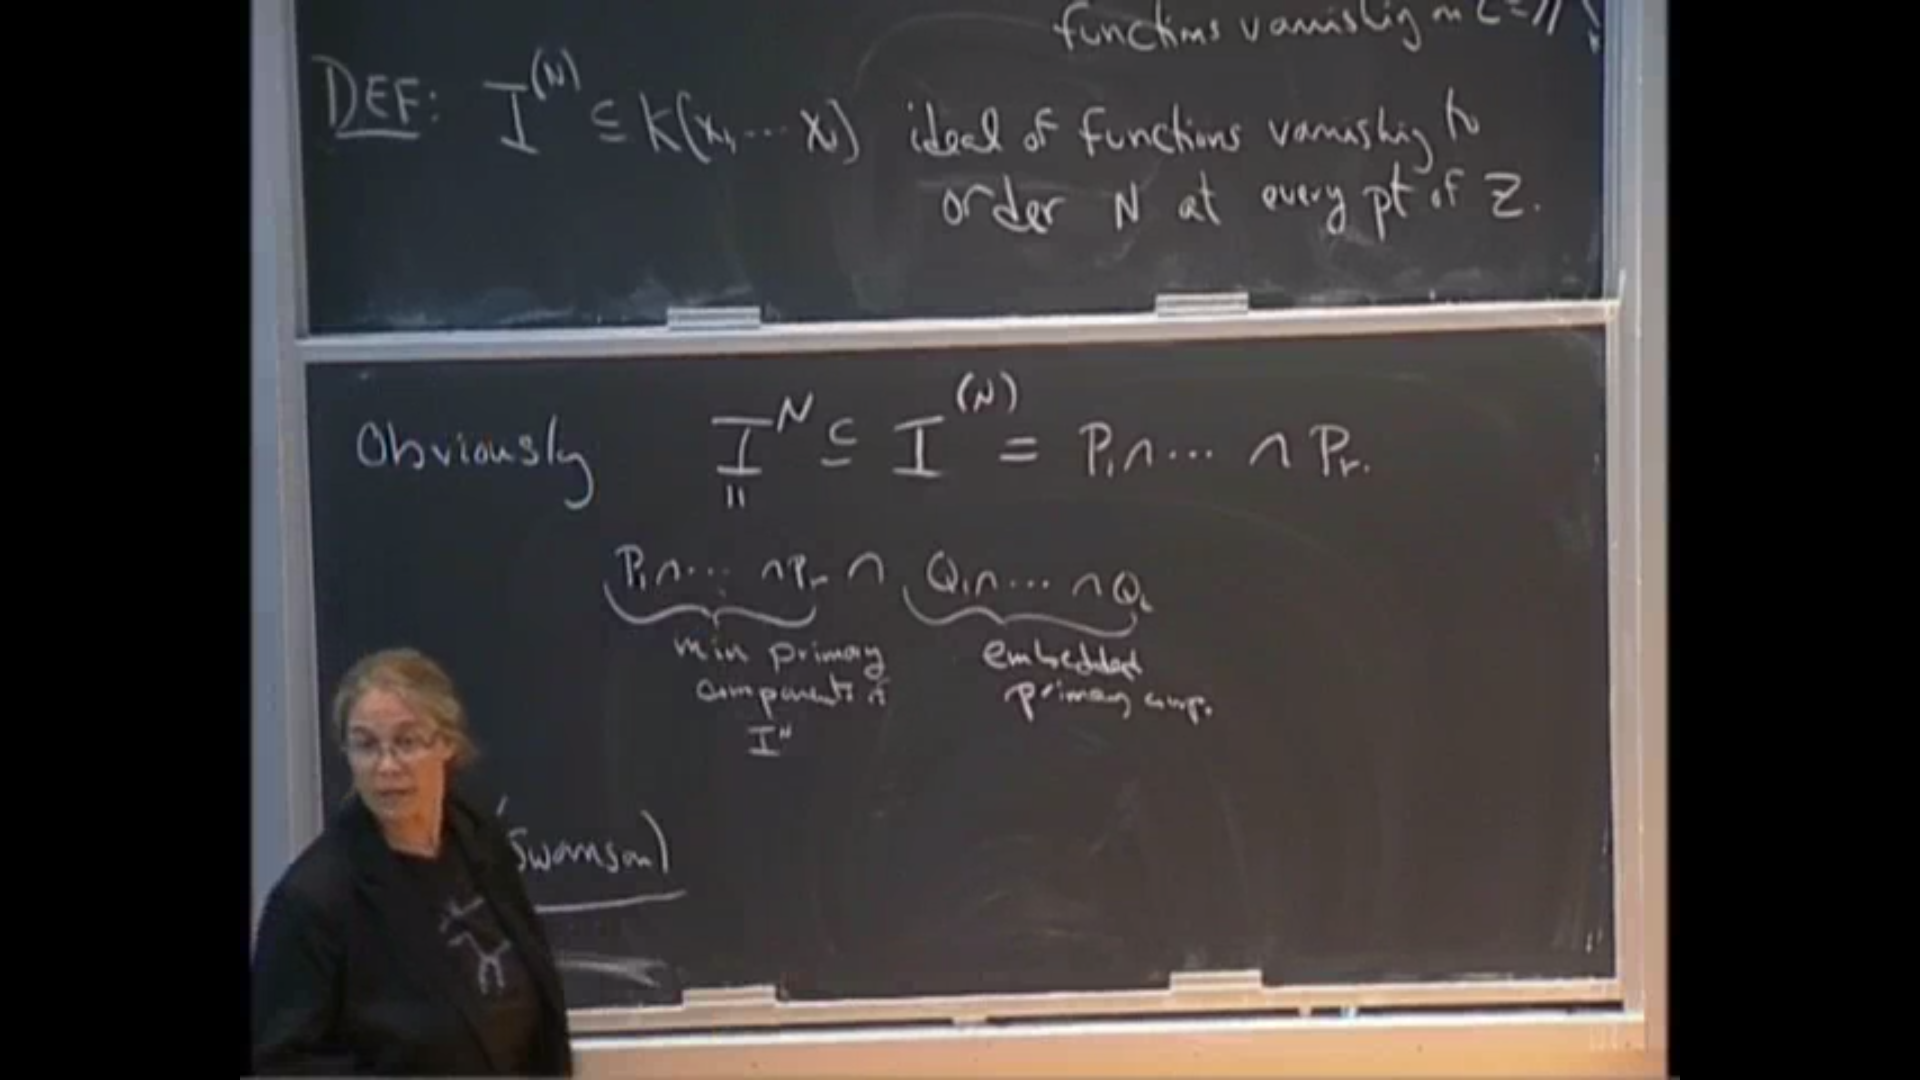 functions vanishing on Z
DEF: I^(N) ⊆ K[x_1, ... x_d] ideal of functions vanishing to
order N at every pt of Z.
Obviously I^N ⊆ I^(N) = P_1 ∩ ... ∩ P_r.
||
P_1 ∩ ... ∩ P_r ∩ Q_1 ∩ ... ∩ Q_t
min primary embedded
components of primary comp.
I^N
Swanson)